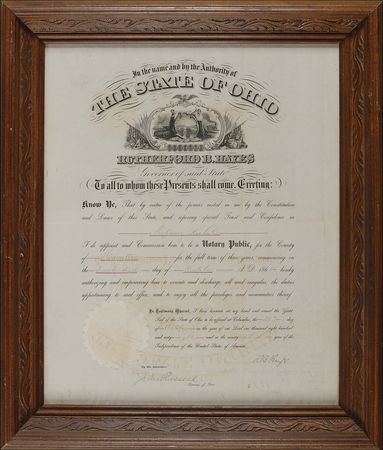 In the name and by the Authority of
THE STATE OF OHIO
RUTHERFORD B. HAYES
Governor of said State
To all to whom these Presents shall come, Greeting:
Know Ye, That by virtue of the powers vested in me by the Constitution
and Laws of this State, and reposing special Trust and Confidence in
I do appoint and Commission him to be a Notary Public, for the County
of for the full term of three years, commencing on
the day of A.D. 186 hereby
authorizing and empowering him to execute and discharge, all and singular, the duties
appertaining to said office, and to enjoy all the privileges and immunities thereof.
In Testimony Whereof, I have hereunto set my hand and caused the Great
Seal of the State of Ohio to be affixed at Columbus, the day
of in the year of our Lord one thousand eight hundred
and sixty and in the ninety year of the
Independence of the United States of America.
R B Hayes
By the Governor:
Secretary of State